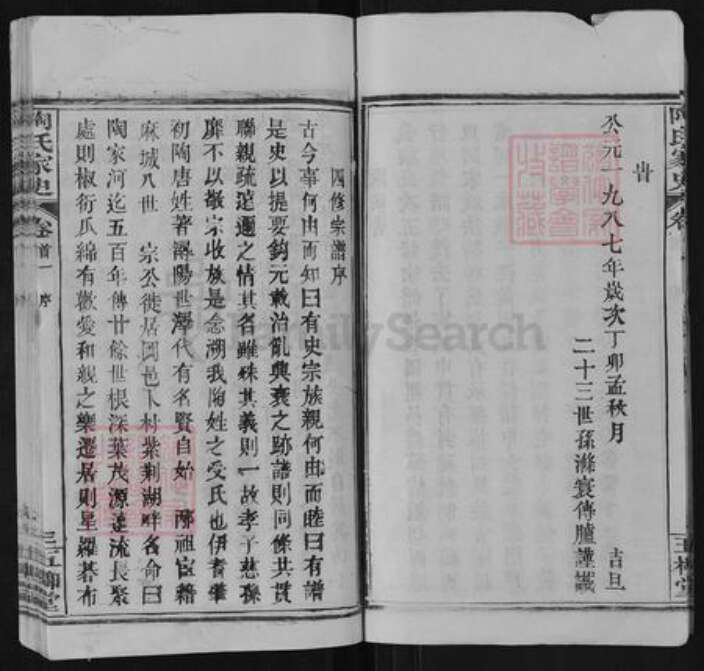 公元一九八七年歲次丁卯孟秋月 吉旦
二十三世孫滌寰傳臚謹識
四修宗譜序
古今事何由而知曰有史宗族親何由而睦曰有譜
是史以提要鈎元載治亂興衰之跡譜則同條共貫
聯親疏逺邇之情其名雖殊其義則一故孝子慈孫
靡不以敬宗收族是念溯我陶姓之受氏也伊耆肇
初陶唐姓著潯陽世澤代有名賢自始 祖宦籍
麻城八世 宗公徙居岡邑卜村紫荆湖畔名命曰
陶家河迄五百年傳廿餘世根深葉茂源逺流長聚
處則椒衍瓜綿有歡愛和親之樂遷居則星羅碁布
陶氏家史 卷首一 序 三 五柳堂
陶氏家史 卷 五柳堂
FamilySearch